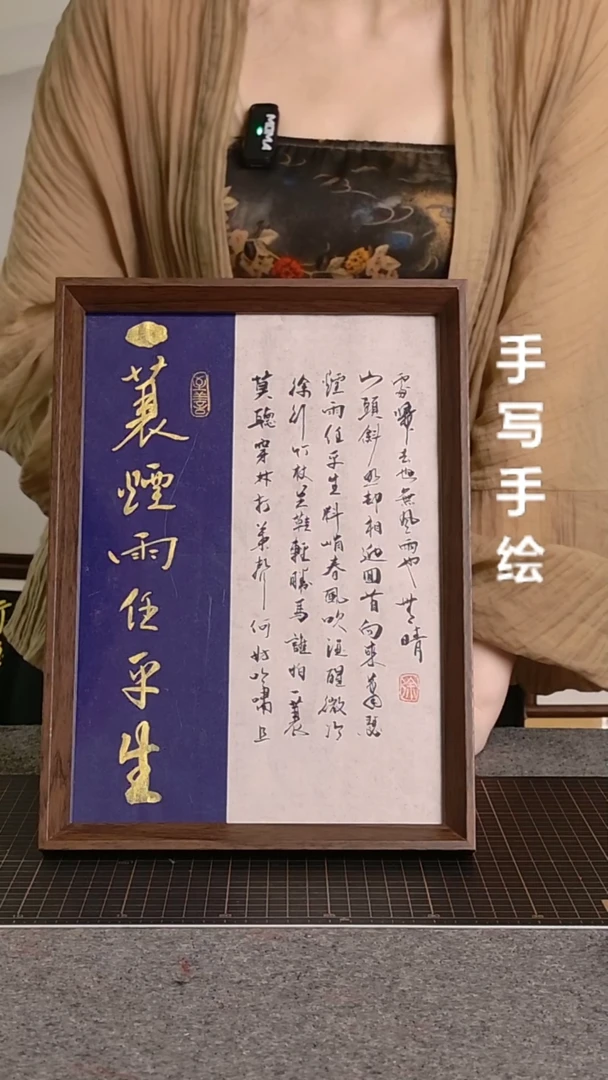 一蓑煙雨任平生
莫聽穿林打葉聲何妨吟嘯且
徐行竹杖芒鞋輕勝馬誰怕一蓑
煙雨任平生料峭春風吹酒醒微冷
山頭斜照却相迎回首向來蕭瑟
處歸去也無風雨也無晴
手写手绘
MOMA